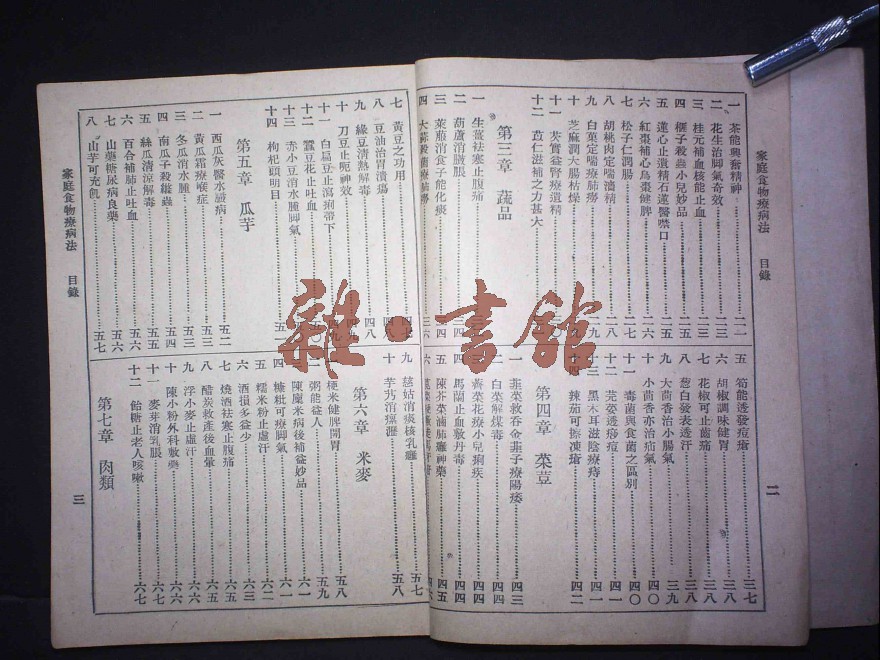 家庭食物療病法 目錄
二
一 茶能興奮精神 二一
二 花生治脚氣奇效 二三
三 桂元補血核能止血 二四
四 榧子殺蟲小兒妙品 二五
五 蓮心止遺精石蓮醫噤口 二五
六 紅棗補心烏棗健脾 二六
七 松子仁潤腸 二七
八 胡桃肉定喘濇精
九 白菓定喘療肺癆
十 芝麻潤大腸枯燥
十一 芡實益腎療遺精
十二 苡仁滋補之力甚大
第三章 蔬品
一 生薑袪寒止腹痛
二 葫蘆消腋脹
三 萊菔消食子能化痰
四 大蒜殺菌療肺癆 三六
五 筍能透發痘瘡 三七
六 胡椒調味健胃 三八
七 花椒可止齒痛 三八
八 葱白發表透汗 三八
九 大茴香治小腸氣 三九
十 小茴香亦治疝氣 四〇
十一 毒菌與食菌之區別 四〇
十二 芫荽透痧痘 四一
十三 黑木耳滋陰療痔 四一
十四 辣茄可擦凍瘡 四二
第四章 菜荳
一 韭菜救吞金韭子療陽痿 四三
二 白菜解煤毒 四四
三 薺菜花療小兒痢疾 四四
四 馬蘭止血敷丹毒 四四
五 陳芥菜滷肺癰神藥 四五
六
家庭食物療病法 目錄
三
七 黃豆之功用
八 豆油治胃潰瘍
九 綠豆清熱解毒 四八
十 刀豆止呃神效
十一 白扁豆止瀉痢帶下
十二 蠶豆花止吐血
十三 赤小豆消水腫脚氣
十四 枸杞頭明目
第五章 瓜芋
一 西瓜灰醫水臌病 五二
二 黃瓜霜療喉症 五三
三 冬瓜消水腫 五三
四 南瓜子殺縧蟲 五四
五 絲瓜清涼解毒 五五
六 百合補肺止吐血 五六
七 山藥糖尿病良藥 五六
八 山芋可充飢 五七
九 慈姑消痰核乳癰 五七
十 芋艿消瘰癧 五八
第六章 米麥
一 粳米健脾開胃 五八
二 粥能益人 五九
三 陳廩米病後補益妙品 六一
四 糠粃可療脚氣 六一
五 糯米粉止虛汗 六二
六 酒損多益少 六三
七 燒酒袪寒止腹痛 六五
八 醋炭救產後血暈 六五
九 浮小麥止虛汗 六六
十 陳小粉外科敷藥 六六
十一 麥芽消乳脹 六七
十二 飴糖止老人咳嗽 六七
第七章 肉類
雜·書館